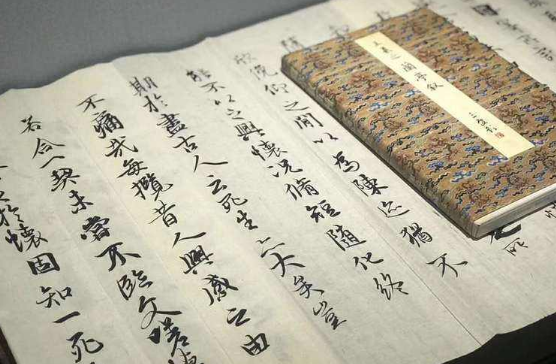 蘭亭敘
欣俛仰之閒以為陳迹猶不
能不以之興懷況脩短隨化終
期於盡古人云死生亦大矣豈
不痛哉每攬昔人興感之由
若合一契未嘗不臨文嗟
於懷固知一死